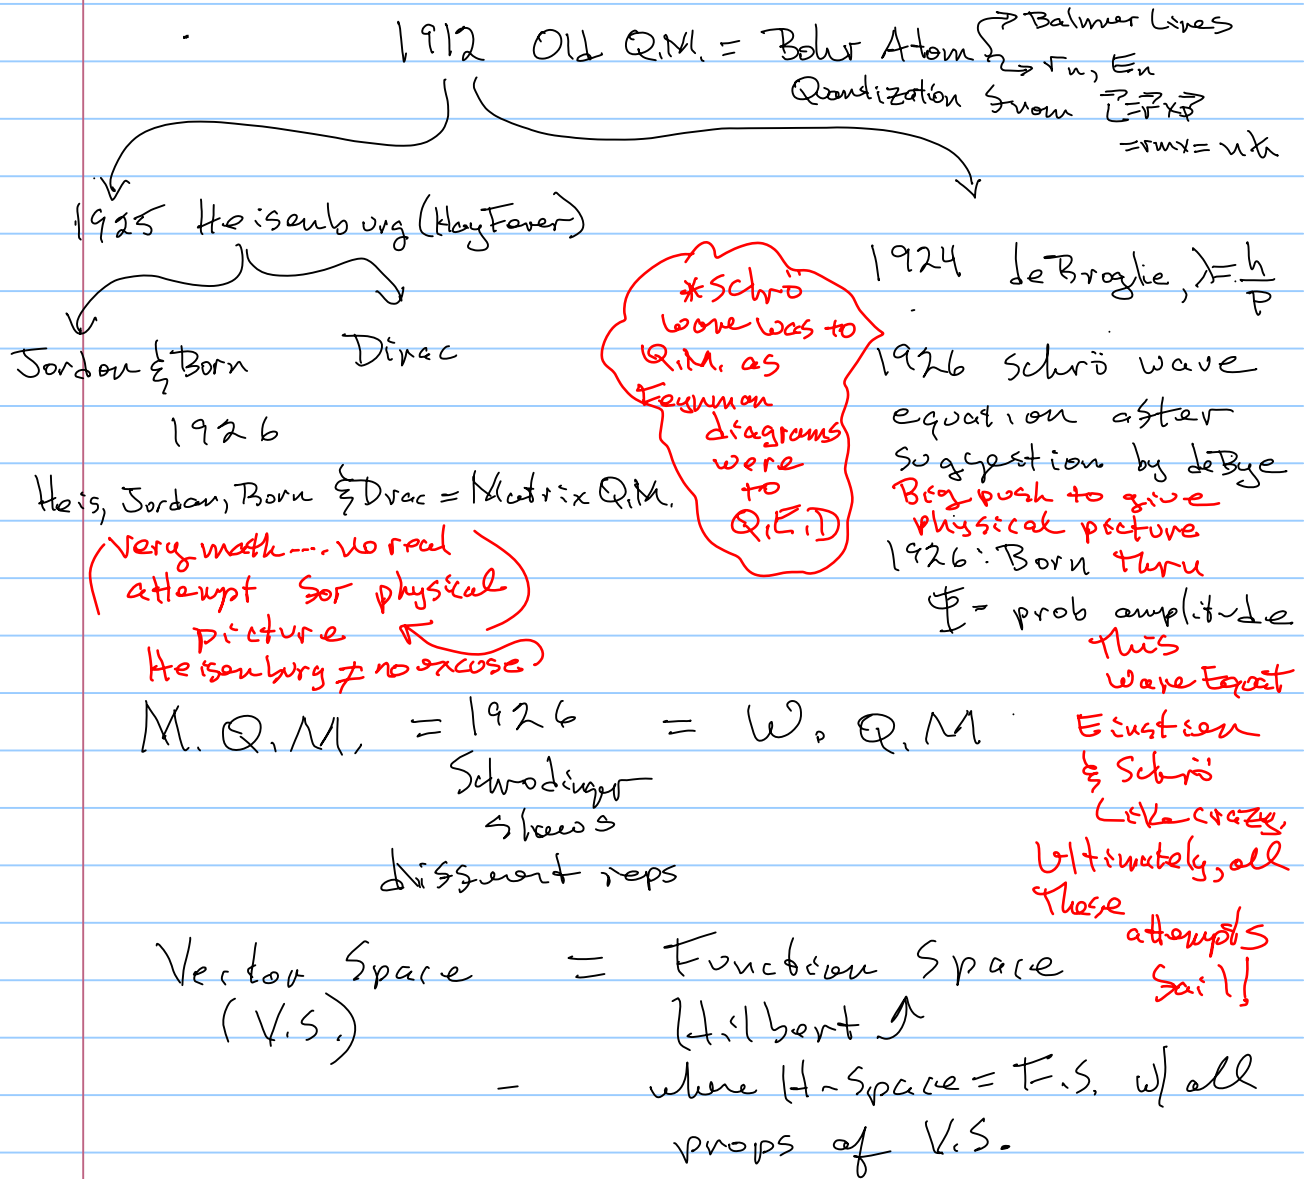 1912 Old Q.M. = Bohr Atom
Balmer Lines
rn, En
Quantization from L = r x p
= rmv = nħ
1925 Heisenburg (Hay Fever)
Jordon & Born
Dirac
1926
Heis, Jordan, Born & Drac = Matrix Q.M.
(Very math.... no real
attempt for physical
picture)
Heisenburg ≠ no excuse
*Schrö
wave was to
Q.M. as
Feynman
diagrams
were
to
Q.E.D
1924 deBroglie, λ = h/p
1926 Schrö wave
equation after
suggestion by deBye
Big push to give
physical picture
1926: Born thru
Ψ = prob amplitude
This
wave Equat
Einstien
& Schrö
Like crazy.
Ultimately, all
these
attempts
fail!
M. Q. M. = 1926 = W. Q. M
Schrodinger
shows
different reps
Vector Space = Function Space
(V.S.) Hilbert
where H-Space = F.S. w/ all
props of V.S.